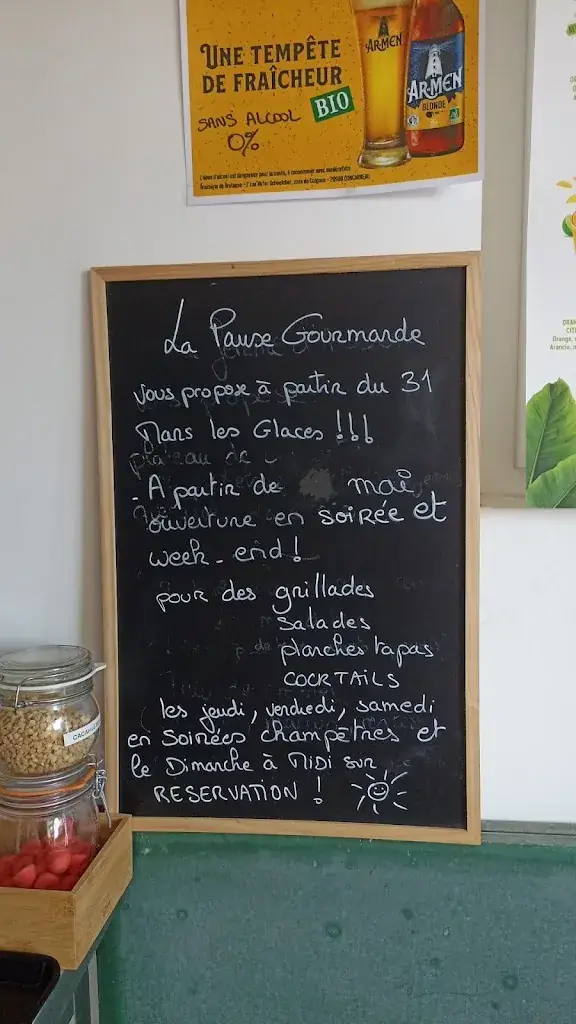 UNE TEMPÊTE
DE FRAÎCHEUR
SANS ALCOOL
0%
BIO
ARMEN
ARMEN
BLONDE
La Pause Gourmande
vous propose à partir du 31
Mars les Glaces !!!
plateau de
- A partir de mai
ouverture en soirée et
week-end !
pour des grillades
salades
planches tapas
COCKTAILS
les jeudi, vendredi, samedi
en Soirées champêtres et
le Dimanche à Midi sur
RESERVATION !